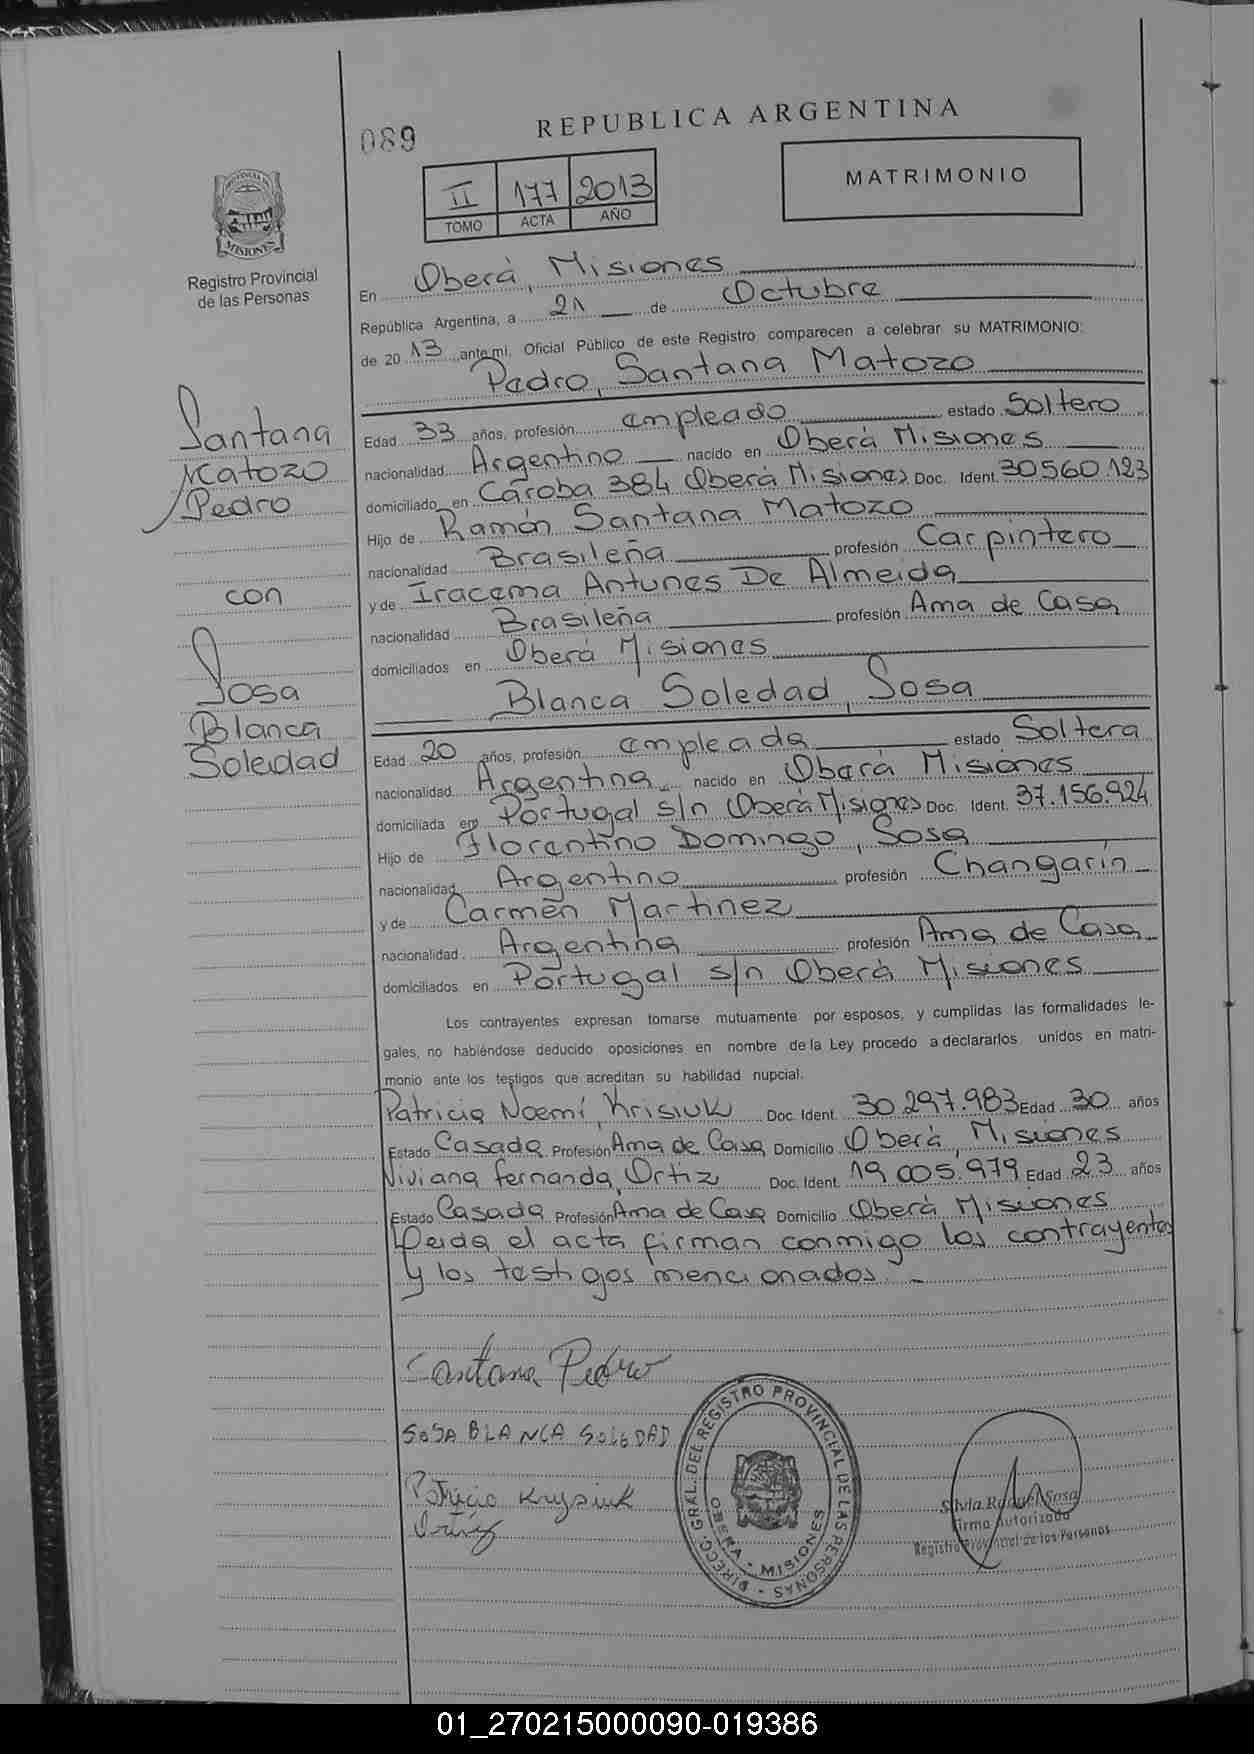 REPUBLICA ARGENTINA
089
II 177 2013
TOMO ACTA AÑO
MATRIMONIO
PROVINCIA DE
MISIONES
Registro Provincial
de las Personas
En Oberá, Misiones
República Argentina, a 21 de Octubre
de 20 13 ante mi, Oficial Público de este Registro comparecen a celebrar su MATRIMONIO:
Pedro, Santana Matozo
Santana
Matozo
Pedro
con
Sosa
Blanca
Soledad
Edad 33 años, profesión empleado estado Soltero
nacionalidad Argentino nacido en Oberá Misiones
domiciliado en Caroba 384 Oberá Misiones Doc. Ident. 30560.123
Hijo de Ramón Santana Matozo
nacionalidad Brasileña profesión Carpintero
y de Iracema Antunes De Almeida
nacionalidad Brasileña profesión Ama de Casa
domiciliados en Oberá Misiones
Blanca Soledad, Sosa
Edad 20 años, profesión empleada estado Soltera
nacionalidad Argentina nacido en Oberá Misiones
domiciliada en Portugal s/n Oberá Misiones Doc. Ident. 37.156.924
Hijo de Florentino Domingo, Sosa
nacionalidad Argentino profesión Changarín
y de Carmen Martinez
nacionalidad Argentina profesión Ama de Casa
domiciliados en Portugal s/n Oberá Misiones
Los contrayentes expresan tomarse mutuamente por esposos, y cumplidas las formalidades le-
gales, no habiéndose deducido oposiciones en nombre de la Ley procedo a declararlos unidos en matri-
monio ante los testigos que acreditan su habilidad nupcial.
Patricia Noemí, Krisiuk Doc. Ident. 30.297.983 Edad 30 años
Estado Casada Profesión Ama de Casa Domicilio Oberá, Misiones
Viviana Fernanda, Ortiz Doc. Ident. 19.005.979 Edad 23 años
Estado Casada Profesión Ama de Casa Domicilio Oberá Misiones
Leida el acta firman conmigo los contrayentes
y los testigos mencionados.
Santana Pedro
SOSA BLANCA SOLEDAD
Patricia Krysiuk
Ortiz
DIRECC. GRAL. DEL REGISTRO PROVINCIAL DE LAS PERSONAS
OBERA - MISIONES
Silvia Raquel Sosa
Firma Autorizada
Registro Provincial de las Personas
01_270215000090-019386